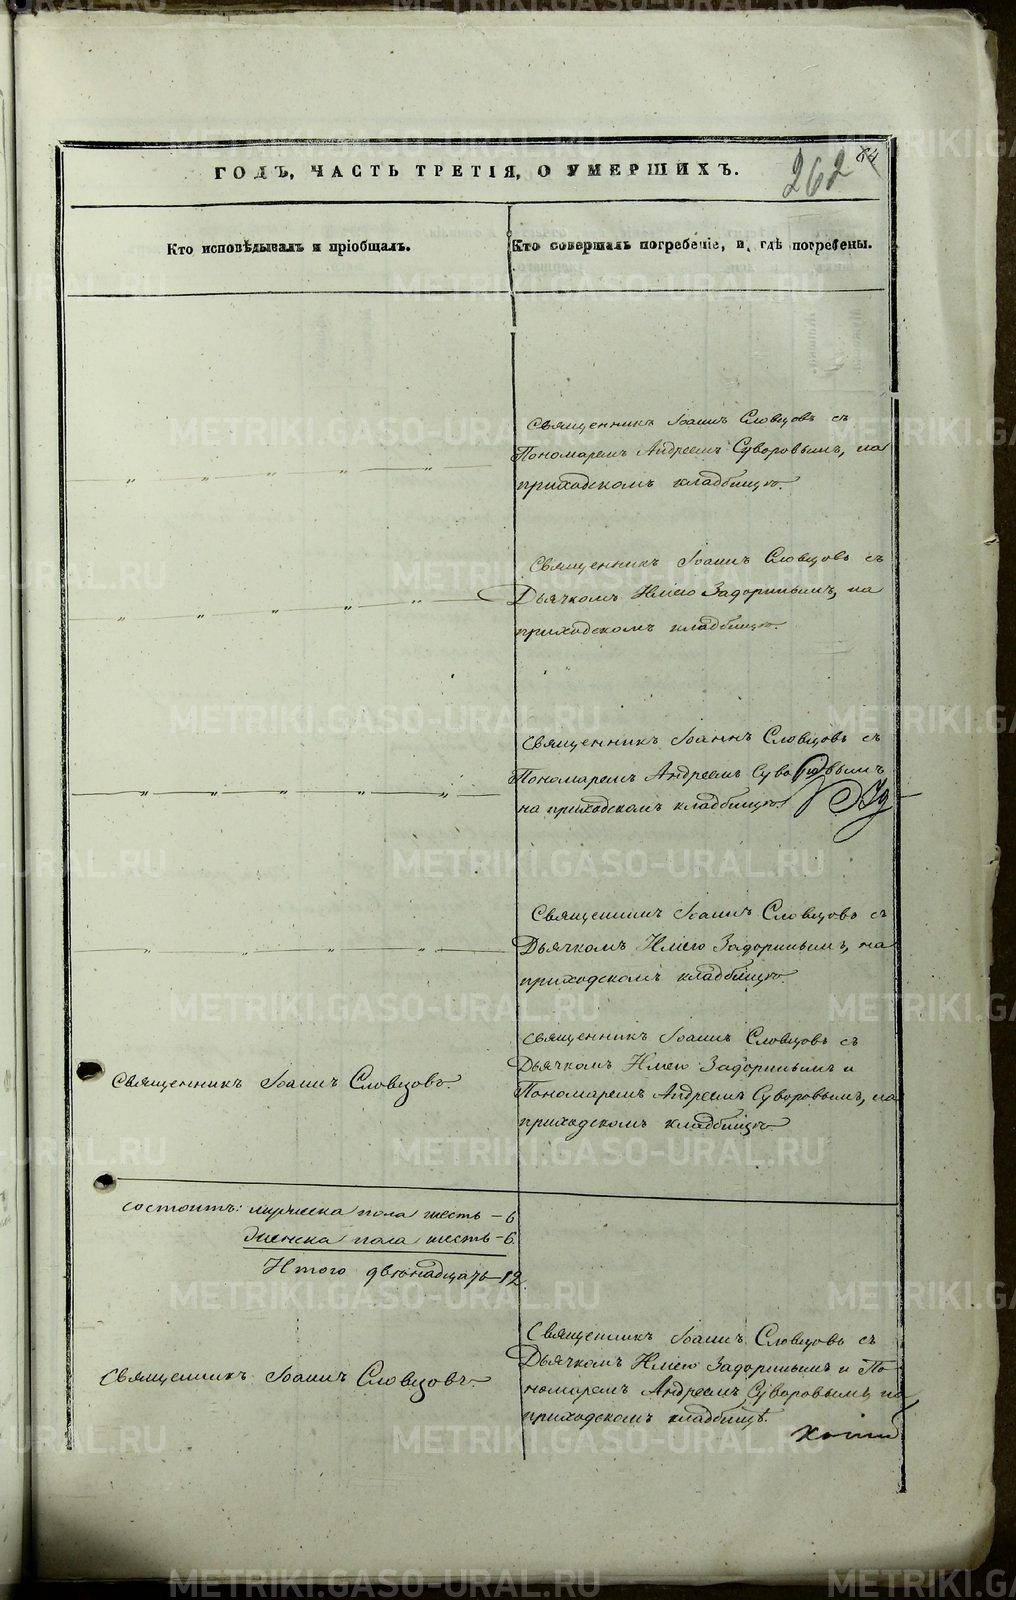 262 84
ГОДЪ, ЧАСТЬ ТРЕТІЯ, О УМЕРШИХЪ.
Кто исповѣдывалъ и пріобщалъ.
Кто совершалъ погребеніе, и гдѣ погребены.
Священникъ Іоаннъ Словцовъ съ
Пономаремъ Андреемъ Суворовымъ, на
приходскомъ кладбищѣ.
Священникъ Іоаннъ Словцовъ съ
Дьячкомъ Задоринымъ, на
приходскомъ кладбищѣ.
Священникъ Іоаннъ Словцовъ съ
Пономаремъ Андреемъ Суворовымъ
на приходскомъ кладбищѣ.
Священникъ Іоаннъ Словцовъ съ
Дьячкомъ Задоринымъ, на
приходскомъ кладбищѣ.
Священникъ Іоаннъ Словцовъ.
Священникъ Іоаннъ Словцовъ съ
Дьячкомъ Задоринымъ и
Пономаремъ Андреемъ Суворовымъ, на
приходскомъ кладбищѣ.
состоитъ: мужеска пола шесть – 6
женска пола шесть – 6.
Итого двѣнадцать – 12
Священникъ Іоаннъ Словцовъ.
Священникъ Іоаннъ Словцовъ съ
Дьячкомъ Задоринымъ и По-
номаремъ Андреемъ Суворовымъ на
приходскомъ кладбищѣ.
METRIKI.GASO-URAL.RU